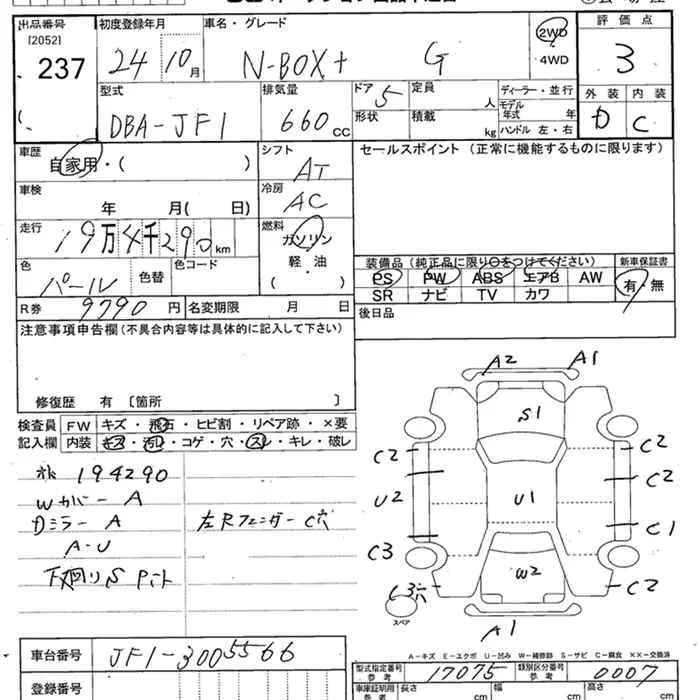 出品番号 初度登録年月 車名・グレード 評価点
[2052]
237 24 10月 N-BOX+ G 2WD 4WD 3
型式 排気量 ドア 定員 ディーラー・並行 外装 内装
DBA-JF1 660cc 5 人 モデル年式 年 D C
形状 積載 kg ハンドル 左・右
車歴 自家用・( ) シフト AT セールスポイント(正常に機能するものに限ります)
車検 年 月( 日) 冷房 AC
走行 19万4千290km 燃料 ガソリン
色 パール 色替 色コード 軽・油 ( ) 装備品(純正品に限り○をつけてください) 新車保証書
PS PW ABS エアB AW 有・無
SR ナビ TV カワ
R券 9790円 名変期限 月 日 後日品
注意事項申告欄(不具合内容等は具体的に記入して下さい)
修復歴 有〔箇所 〕
検査員 FW キズ・飛石・ヒビ割・リペア跡・×要
記入欄 内装 キズ・汚レ・コゲ・穴・スレ・キレ・破レ
194290
Wカバー A
Dミラー A
A-U
下廻りS
左Rフェンダー C穴
A2 A1
S1
C2 C2
U2 C2
U1 C1
C3 C2
W2
C3穴
スペア
A1
A-キズ E-エクボ U-凹み W-補修跡 S-サビ C-腐食 XX-交換済
車台番号 JF1-3005566
型式指定番号 参考 17075 類別区分番号 参考 0007
登録番号 車庫証明用 参考 長さ cm 幅 cm 高さ cm